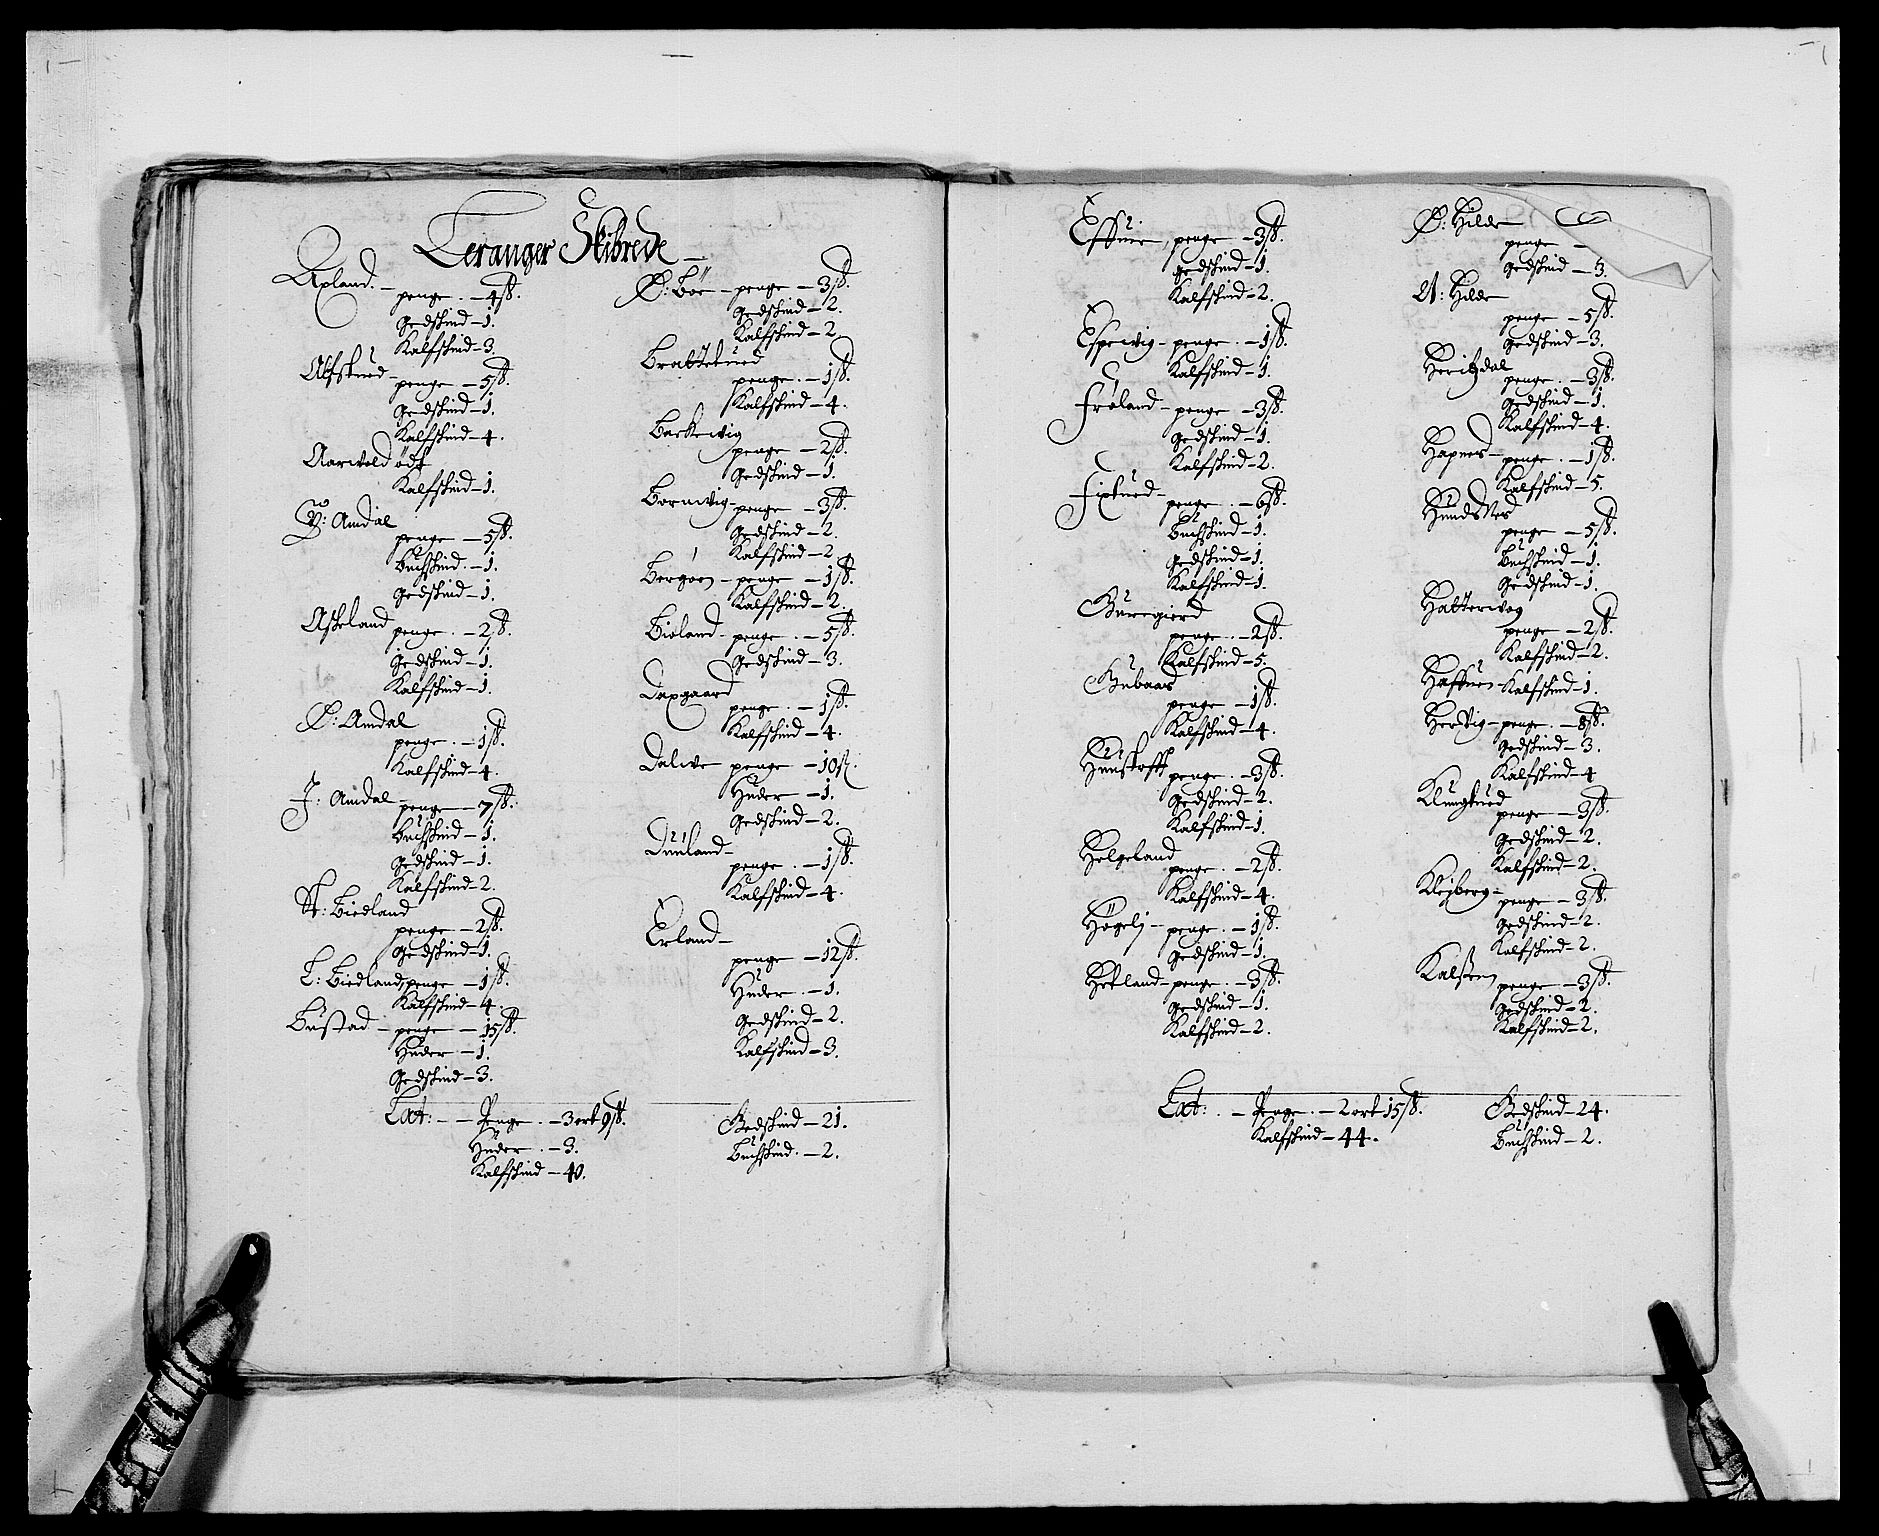 Leranger Skibrede
Axland. – penge. – 4 ß.
Gedskind – 1.
Kalfskind – 3.
Alfskued – penge – 5 ß.
Gedskind – 1.
Kalfskind – 4.
Aarvold ødt
Kalfskind – 1.
Y: Amdal
penge – 5 ß.
Buchskind. – 1.
Gedskind – 1.
Askeland penge. – 2 ß.
Gedskind – 1.
Kalfskind – 1.
Ø: Amdal
penge. – 1 ß.
Kalfskind – 4.
I: Amdal – penge – 7 ß.
Buchskind – 1.
Gedskind – 1.
Kalfskind – 2.
St: Biedland
penge – 2 ß.
Gedskind – 1.
L: Biedland, penge – 1 ß.
Kalfskind – 4.
Bustad – penge – 15 ß.
Huder – 1.
Gedskind – 3.
Ø: Böe – penge – 3 ß.
Gedskind – 2.
Kalfskind – 2.
Brattetued
penge. – 1 ß.
Kalfskind – 4.
Barkevig
penge – 2 ß.
Gedskind – 1.
Bornevig – penge – 3 ß.
Gedskind – 2.
Kalfskind – 2.
Bergøen – penge – 1 ß.
Kalfskind – 2.
Bioland – penge. – 5 ß.
Gedskind – 3.
Daxgaard
penge. – 1 ß.
Kalfskind – 4.
Dalve penge – 10 ß.
Huder – 1.
Gedskind – 2.
Duuland –
penge. – 1 ß.
Kalfskind – 4.
Erland –
penge – 12 ß.
Huder. – 1.
Gedskind – 2.
Kalfskind – 3.
Lat: – – Penge. – 3 ort 9 ß. Gedskind – 21.
Huder. – 3. Buchskind. – 2.
Kalfskind – 40.
penge – 3 ß.
Gedskind – 1.
Kalfskind – 2.
Espevig – penge. – 1 ß.
Kalfskind – 1.
Frøland – penge – 3 ß.
Gedskind – 1.
Kalfskind – 2.
Fixtued –
penge. – 6 ß.
Buchskind – 1.
Gedskind – 1.
Kalfskind – 1.
Buregierd
penge. – 2 ß.
Kalfskind – 5.
Gubaas
penge – 1 ß.
Kalfskind – 4.
penge. – 3 ß.
Gedskind – 2.
Kalfskind – 1.
Helgeland
penge. – 2 ß.
Kalfskind – 4.
Högelj – penge. – 1 ß.
Gedskind – 1.
Hetland – penge. – 3 ß.
Gedskind – 1.
Kalfskind – 2.
Ø: Hilde
penge –
Gedskind – 3.
N: Hilde
penge – 5 ß.
Gedskind – 3.
penge. – 3 ß.
Gedskind – 1.
Kalfskind – 4.
Hapnes – penge. – 1 ß.
Kalfskind – 5.
Hundsnes
penge – 5 ß.
Buchskind – 1.
Gedskind – 1.
Hattervog
penge – 2 ß.
Kalfskind – 2.
Kalfskind – 1.
Hervig – penge. – 8 ß.
Gedskind – 3.
Kalfskind – 4
Klungtued
penge – 3 ß.
Gedskind – 2.
Kalfskind – 2.
Klejberg –
penge – 3 ß.
Gedskind – 2.
Kalfskind – 2.
penge – 3 ß.
Gedskind – 2.
Kalfskind – 2.
Lat: . – Penge. – 2 ort 15 ß. Gedskind – 24.
Kalfskind – 44. Buchskind – 2.